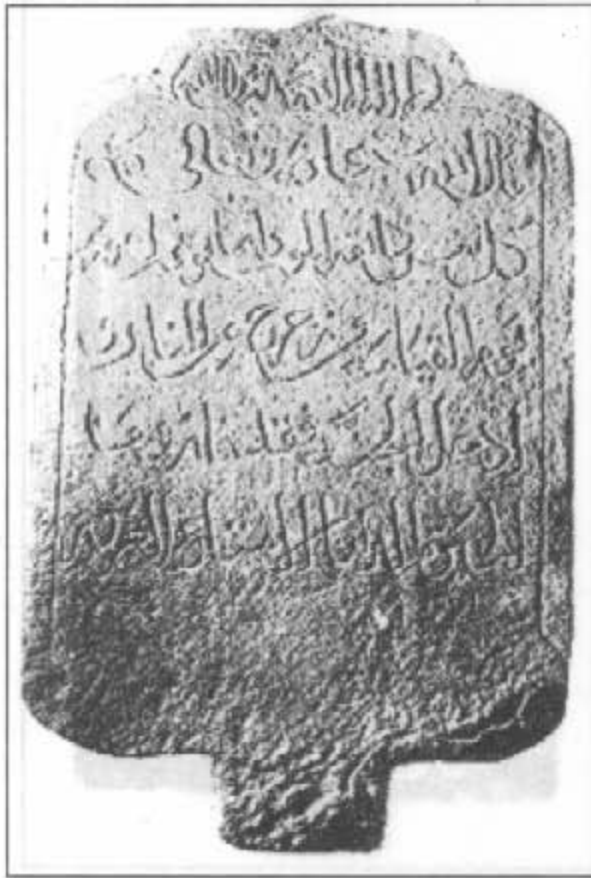 بسم الله الرحمن الرحيم
قال الله تعالى
كل نفس ذائقة الموت وانما توفون
يوم القيامة فمن زحزح عن النار و
ادخل الجنة فقد فاز وما
الحيوة الدنيا الا متاع الغرور